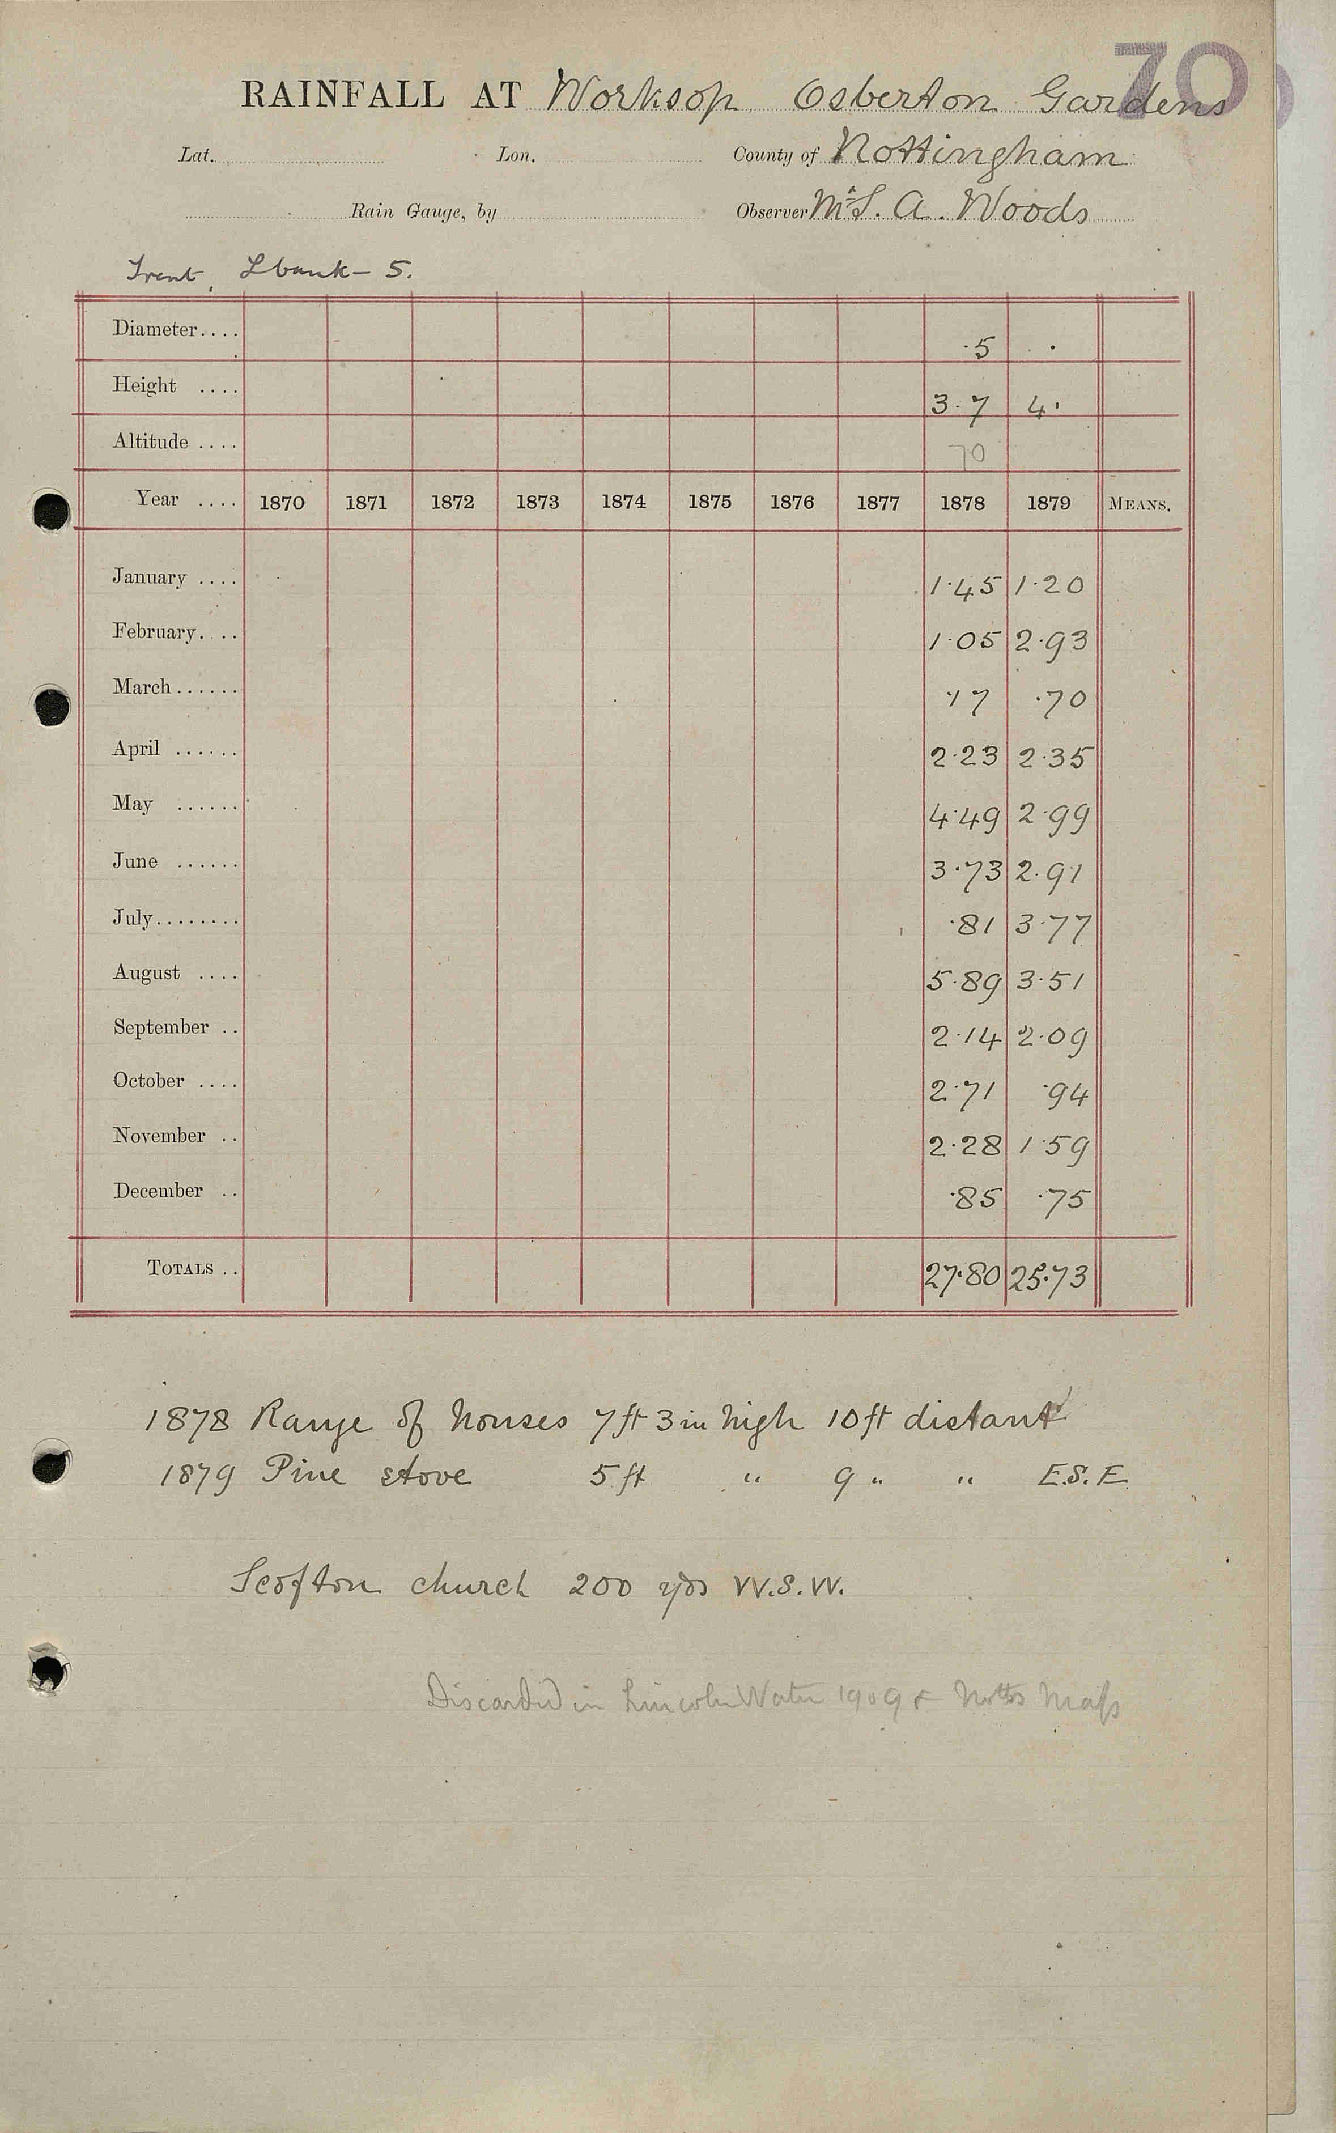 70
RAINFALL AT Worksop Osberton Gardens
Lat. Lon. County of Nottingham
Rain Gauge, by Observer Mr S. A. Woods
Trent, L bank - 5.
Diameter.... ·5 ·
Height .... 3·7 4·
Altitude .... 70
Year .... 1870 1871 1872 1873 1874 1875 1876 1877 1878 1879 MEANS.
January .... 1·45 1·20
February.... 1·05 2·93
March...... ·17 ·70
April ...... 2·23 2·35
May ...... 4·49 2·99
June ...... 3·73 2·91
July........ ·81 3·77
August .... 5·89 3·51
September .. 2·14 2·09
October .... 2·71 ·94
November .. 2·28 1·59
December .. ·85 ·75
TOTALS .. 27·80 25·73
1878 Range of houses 7 ft 3 in high 10 ft distant
1879 Pine stove 5 ft " 9 " " E.S.E.
Scofton church 200 yds W.S.W.
Discarded in Lincoln Water 1909 & Notts Maps